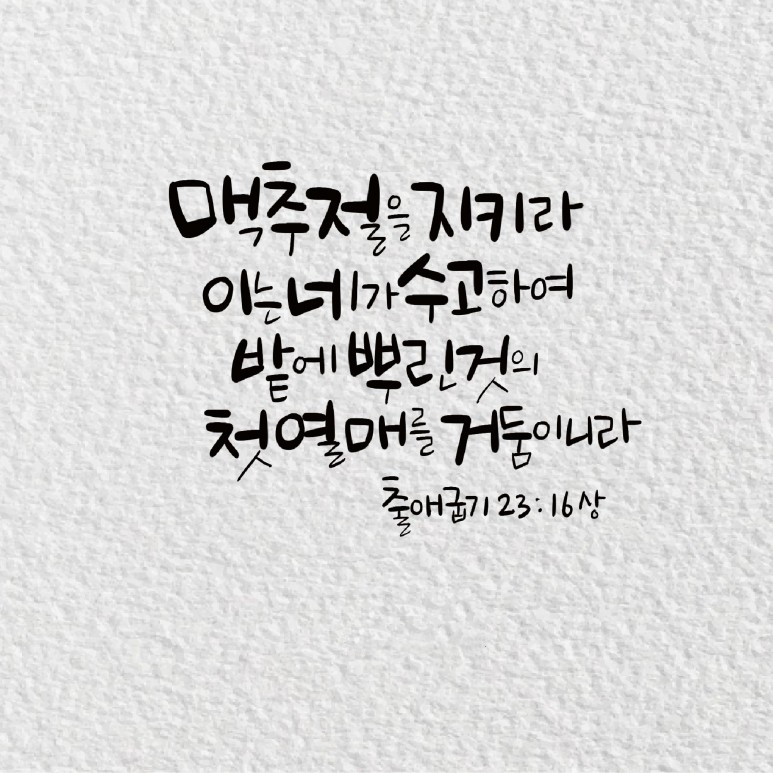 맥추절을 지키라
이는 네가 수고하여
밭에 뿌린것의
첫 열매를 거둠이니라
출애굽기 23:16상